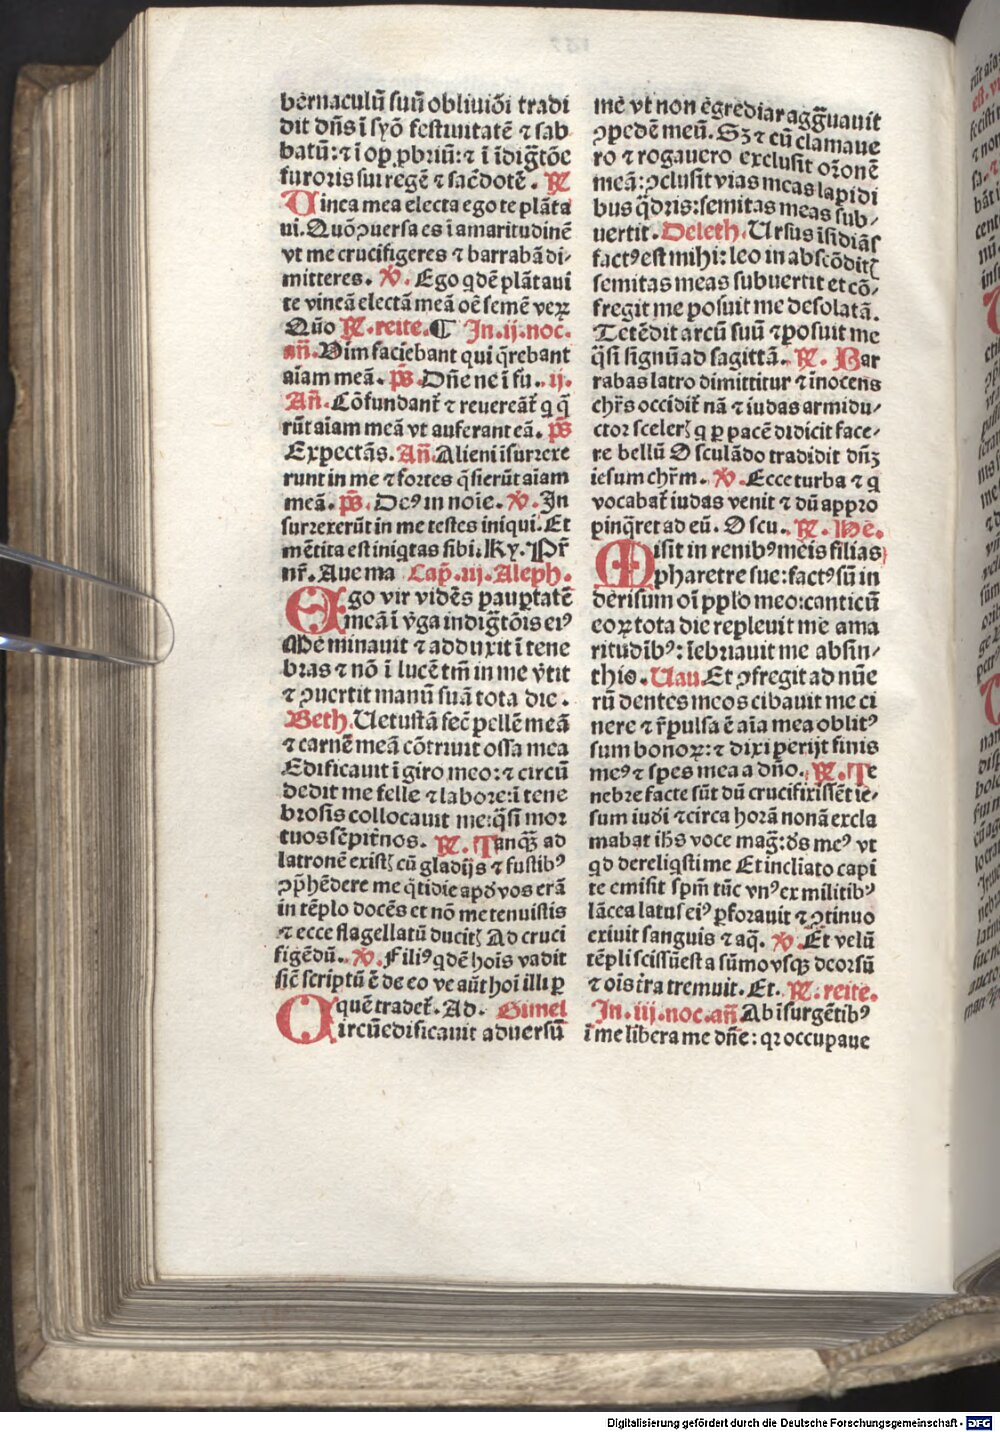 bernaculū suū obliuiōi tradi
dit dn̄s ī syō festiuitatē ⁊ sab
batū: ⁊ ī op̄ꝓbriū: ⁊ ī īdign̄tōe
furoris sui regē ⁊ sac̄dotē. ℟
Uinea mea electa ego te plāta
ui. Quōꝯuersa es ī amaritudinē
vt me crucifigeres ⁊ barrabā di⸗
mitteres. ℣. Ego qdē plātaui
te vineā electā meā oē semē veꝝ
Quo ℟. reite. ¶ In. ij. noc.
an̄. Uim faciebant qui q̄rebant
aīam meā. p̄s. Dn̄e ne ī fu.. ij.
An̄. Cōfundant̄ ⁊ reuereāt̄ q q̄
rūt aīam meā vt auferant eā. p̄s
Expectās. An̄. Alieni īsurrexe
runt in me ⁊ fortes q̄sierūt aīam
meā. p̄s. Deꝰ in noīe. ℣. In
surrexerūt in me testes iniqui. Et
mētita est iniqtas sibi. Ky. Pr̄
nr̄. Aue ma Cap̄. iij. Aleph.
Ego vir vidēs paup̱tatē
meā ī v̄ga indign̄tōis eiꝰ
Me minauit ⁊ adduxit ī tene
bras ⁊ nō ī lucē tm̄ in me v̄tit
⁊ ꝯuertit manū suā tota die.
Beth. Uetustā fec̄ pellē meā
⁊ carnē meā cōtriuit ossa mea
Edificauit ī giro meo: ⁊ circū
dedit me felle ⁊ labore: ī tene
brosis collocauit me: q̄si mor
tuos sēpit̄nos. ℟. Tanqꝫ ad
latronē existꝭ cū gladijs ⁊ fustibꝰ
ꝯp̄hēdere me q̄tidie apd̄ vos erā
in tēplo docēs et nō me tenuistis
⁊ ecce flagellatū ducitꝭ Ad cruci
figēdū. ℣. Filiꝰ qdē hoīs vadit
sic̄ scriptū ē de eo ve aūt hoī illi ꝑ
quē tradet̄. Ad. Gimel
Circūedificauit aduersū
me vt non egrediar aggrauauit
ꝯpedē meū. Sꝫ ⁊ cū clamaue
ro ⁊ rogauero exclusit orōnē
meā: ꝯclusit vias meas lapidi
bus q̄dris: semitas meas sub⸗
uertit. Deleth. Ursus īsidiās
factꝰ est mihi: leo in abscōditꝭ
semitas meas subuertit et cō⸗
fregit me posuit me desolatā.
Tetēdit arcū suū ⁊ posuit me
q̄si signū ad sagittā. ℟. Bar
rabas latro dimittitur ⁊ īnocens
chr̄s occidit̄ nā ⁊ iudas armidu⸗
ctor scelerꝭ q ꝑ pacē didicit face⸗
re bellū Osculādo tradidit dn̄ꝫ
iesum chr̄m. ℣. Ecce turba ⁊ q
vocabat̄ iudas venit ⁊ dū appro
pinq̄ret ad eū. Oscu. ℟. He.
Misit in renibꝰ meis filias
pharetre sue: factꝰ sū in
derisum oī pp̄lo meo: canticū
eoꝝ tota die repleuit me ama
ritudībꝰ: īebriauit me absin⸗
thio. Uau. Et ꝯfregit ad nūe
rū dentes meos cibauit me ci
nere ⁊ r̄pulsa ē aīa mea oblitꝰ
sum bonoꝝ: ⁊ dixi perijt finis
meꝰ ⁊ spes mea a dn̄o. ℟. Te
nebre facte sūt dū crucifixissēt ie⸗
sum iudi ⁊ circa horā nonā excla
mabat ih̄s voce maḡ: ds̄ meꝰ vt
qd dereliqsti me Et incliato capi
te emisit spm̄ tūc vnꝰ ex militibꝰ
lācea latus eiꝰ ꝑforauit ⁊ ꝯtinuo
exiuit sanguis ⁊ aq̄. ℣. Et velū
tēpli scissū est a sūmo vsqꝫ deorsū
⁊ oīs tr̄a tremuit. Et. ℟. reite.
In. iij. noc. an̄ Ab īsurgētibꝰ
ī me libera me dn̄e: qꝛ occupaue
Digitalisierung gefördert durch die Deutsche Forschungsgemeinschaft - DFG